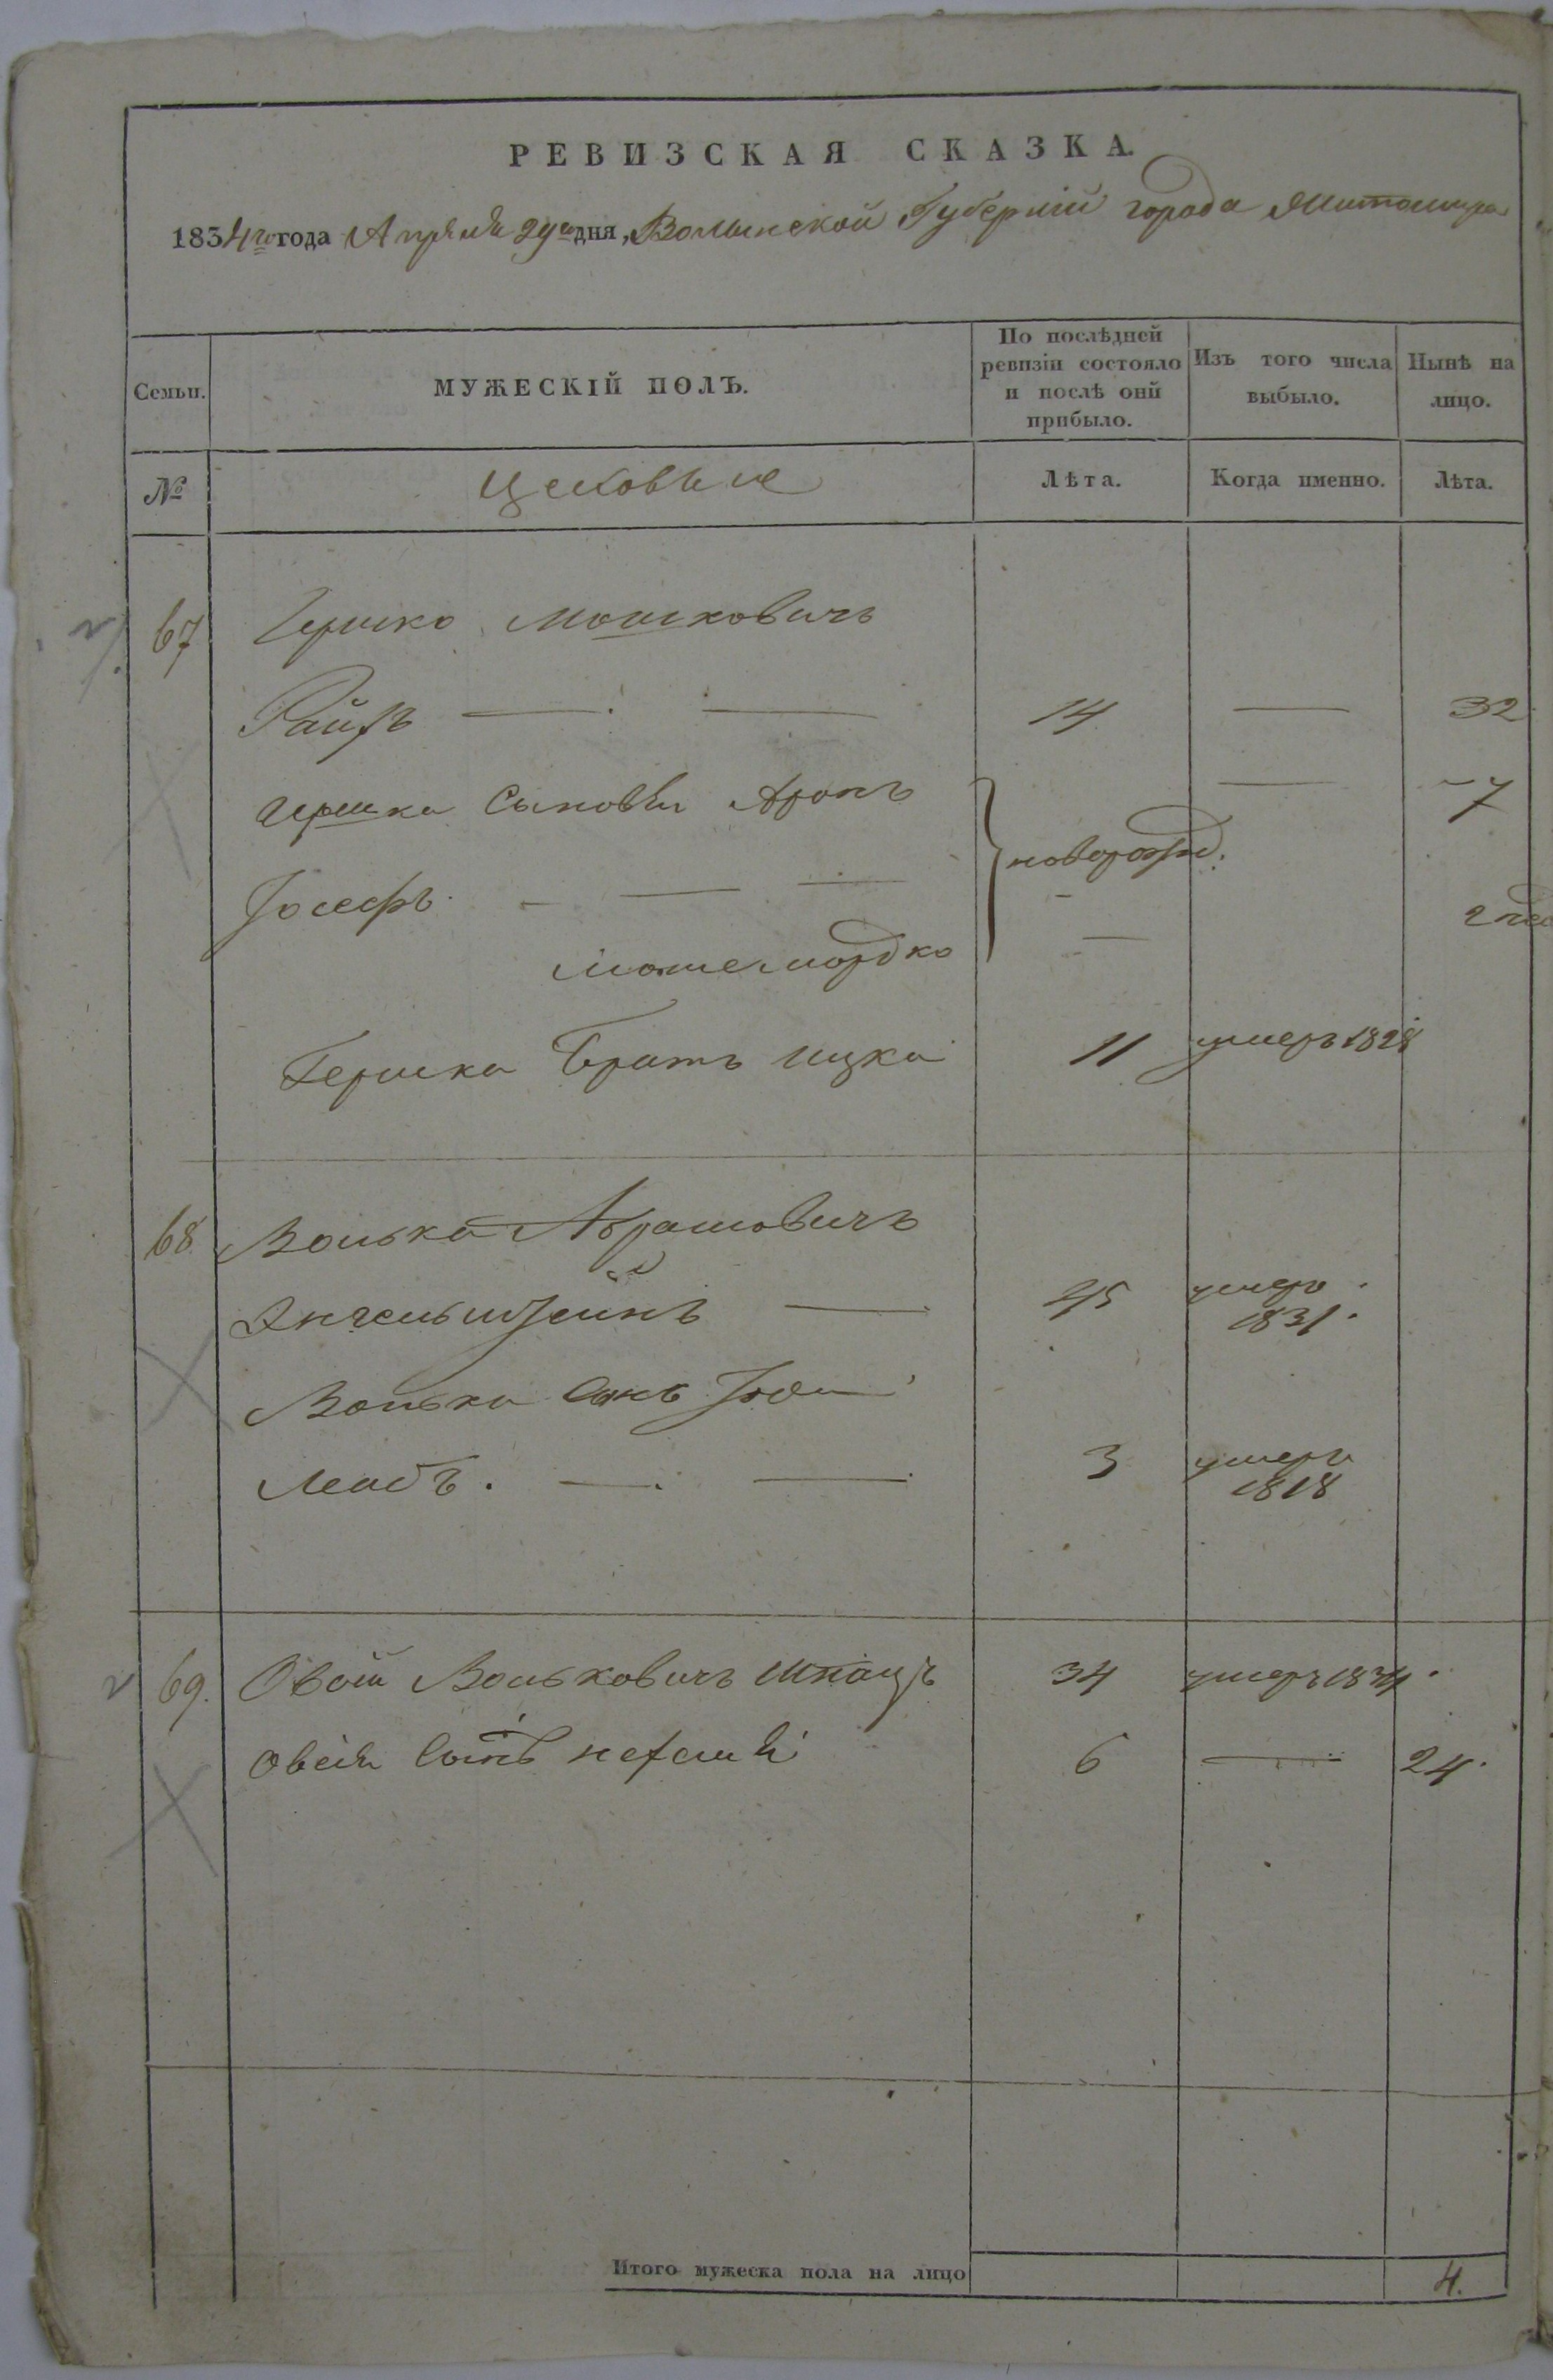 РЕВИЗСКАЯ СКАЗКА.
1834го года Апреля 29го дня, Волынской Губерніи города Житомира
Семьи.
МУЖЕСКІЙ ПОЛЪ.
По послѣдней ревизіи состояло и послѣ оній прибыло.
Изъ того числа выбыло.
Нынѣ на лицо.
№
Цеховые
Лѣта.
Когда именно.
Лѣта.
67 Гершко Мошковичъ
Райзъ — — 14 — 32
Гершка Сыновья Аронъ — 7
новорожд:
Іосефъ — —
Мошемордко —
Гершка Братъ Ицка 11 умеръ 1828
68 Волька Абрамовичъ
Энгельштейнъ — 45 умеръ 1831.
Волька Сынъ
Лейбъ. — — 3 умеръ 1818
69. Овсій Вольковичъ Шпацъ 34 умеръ 1834.
Овсія Сынъ 6 — 24.
Итого мужеска пола на лицо 4.